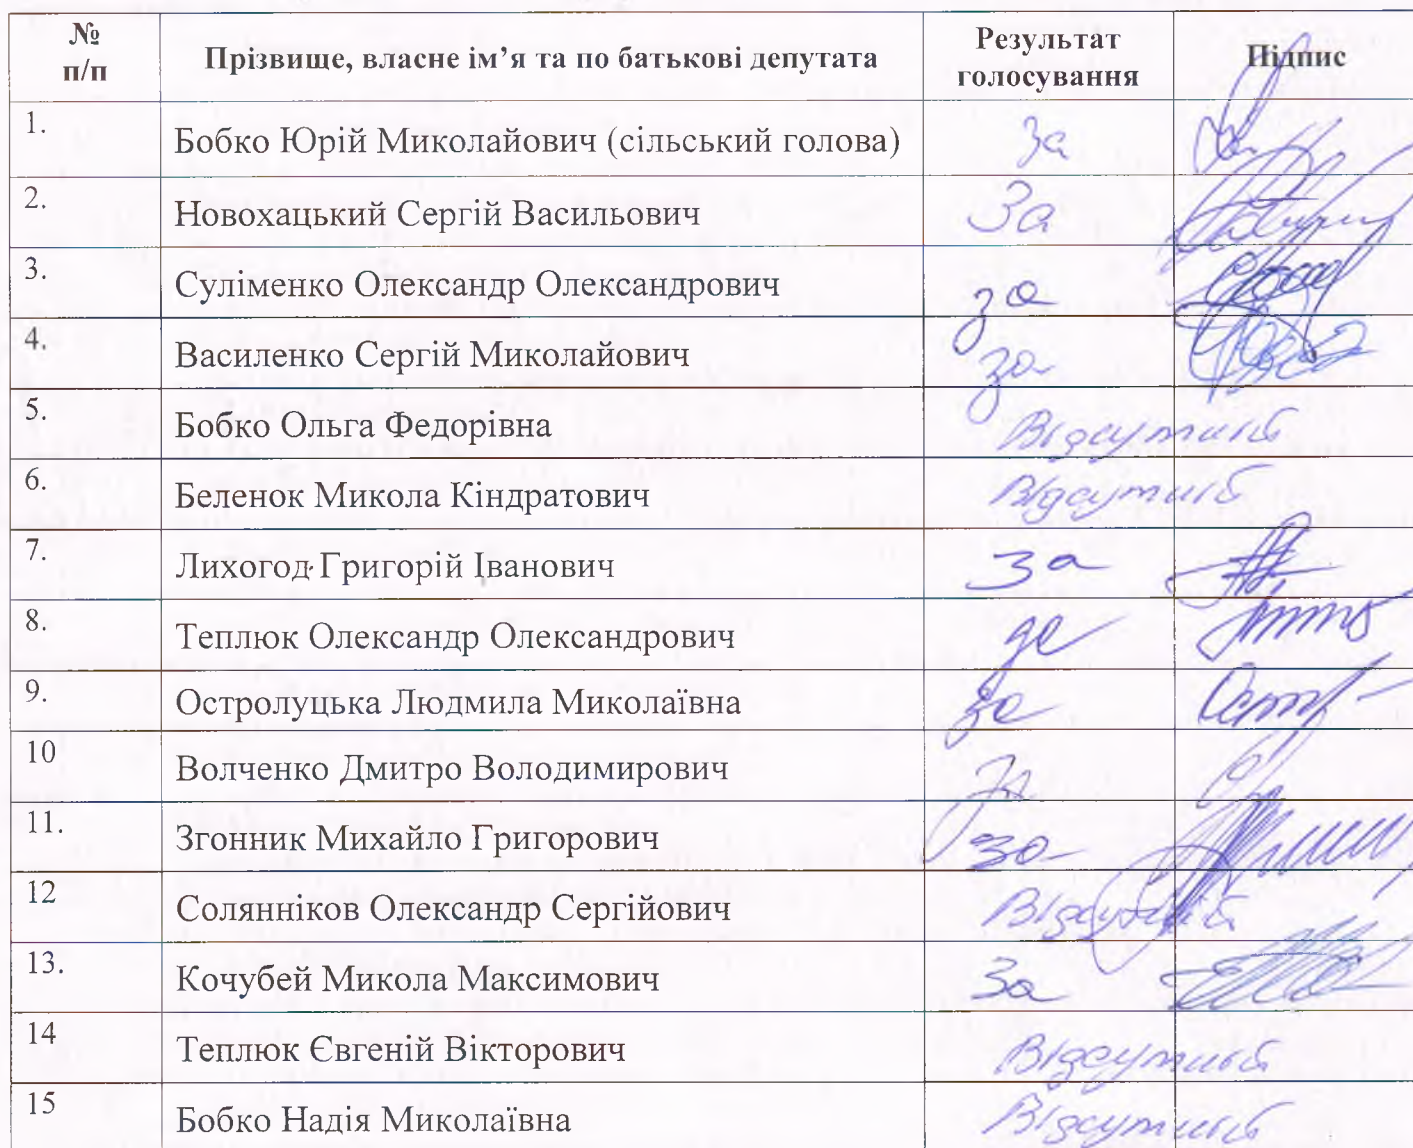 № п/п Прізвище, власне ім’я та по батькові депутата Результат голосування Підпис
1. Бобко Юрій Миколайович (сільський голова) За
2. Новохацький Сергій Васильович За
3. Суліменко Олександр Олександрович за
4. Василенко Сергій Миколайович за
5. Бобко Ольга Федорівна Відсутній
6. Беленок Микола Кіндратович Відсутній
7. Лихогод Григорій Іванович За
8. Теплюк Олександр Олександрович за
9. Остролуцька Людмила Миколаївна за
10 Волченко Дмитро Володимирович За
11. Згонник Михайло Григорович за
12 Солянніков Олександр Сергійович Відсутній
13. Кочубей Микола Максимович За
14 Теплюк Євгеній Вікторович Відсутній
15 Бобко Надія Миколаївна Відсутній